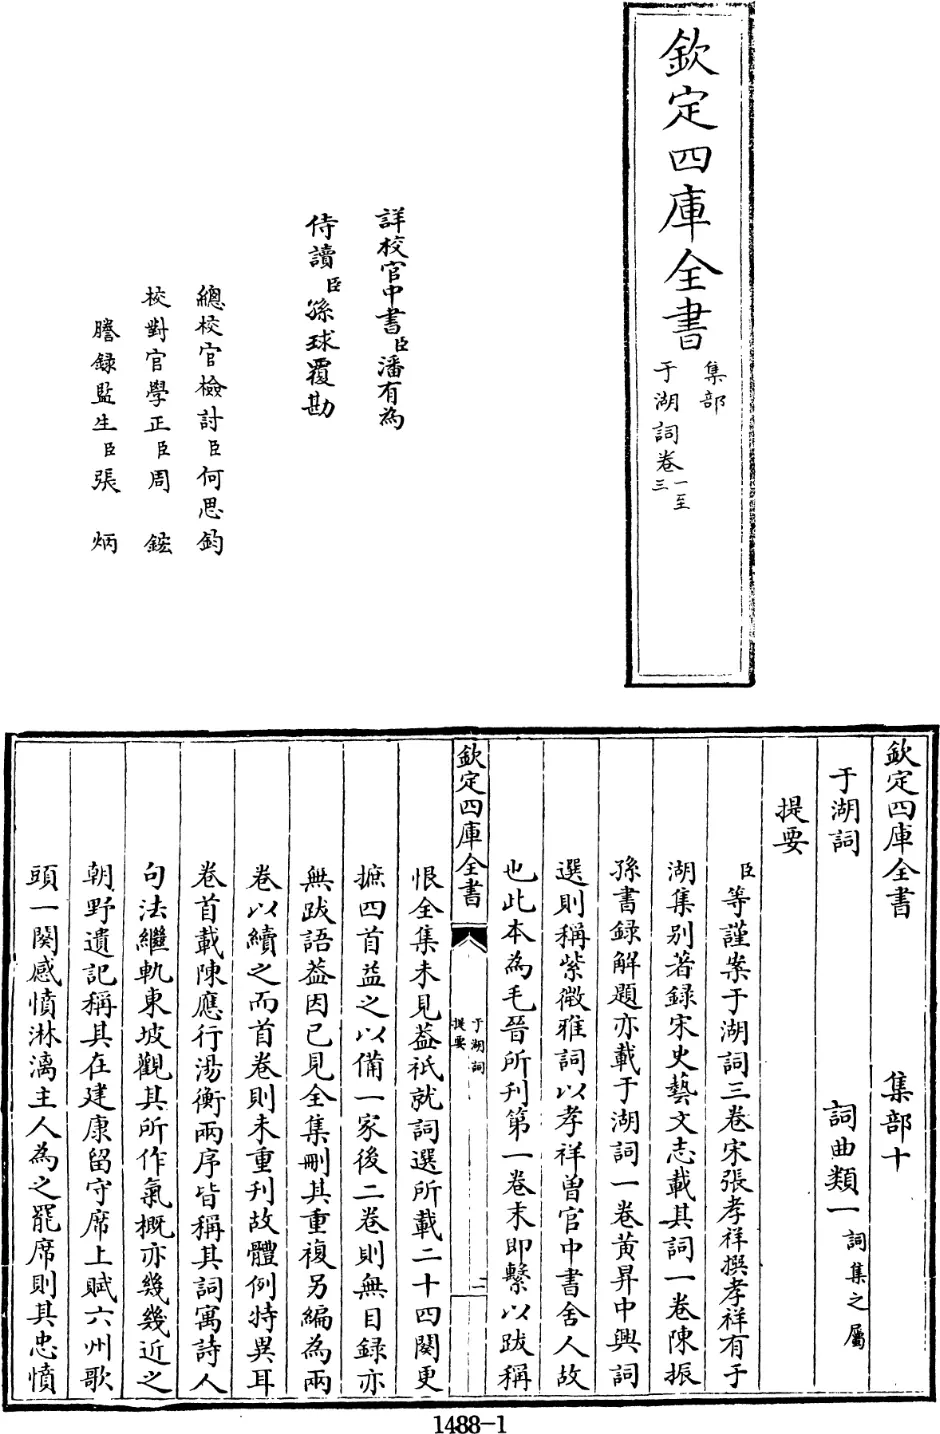 欽定四庫全書
集部
于湖詞卷一至三
詳校官中書臣潘有為
侍讀臣孫球覆勘
總校官檢討臣何思鈞
校對官學正臣周鋐
謄録監生臣張炳
欽定四庫全書 集部十
于湖詞 詞曲類一 詞集之屬
提要
臣等謹案于湖詞三卷宋張孝祥撰孝祥有于
湖集别著録宋史藝文志載其詞一卷陳振
孫書録解題亦載于湖詞一卷黄昇中興詞
選則稱紫微雅詞以孝祥曽官中書舍人故
也此本為毛晉所刋第一卷末即繫以跋稱
恨全集未見葢祇就詞選所載二十四闋更
摭四首益之以備一家後二卷則無目録亦
無跋語葢因已見全集刪其重複另編為兩
卷以續之而首卷則未重刋故體例特異耳
卷首載陳應行湯衡兩序皆稱其詞寓詩人
句法繼軌東坡觀其所作氣概亦幾幾近之
朝野遺記稱其在建康留守席上賦六州歌
頭一闋感憤淋漓主人為之罷席則其忠憤
欽定四庫全書
于湖詞
提要
一
1488-1